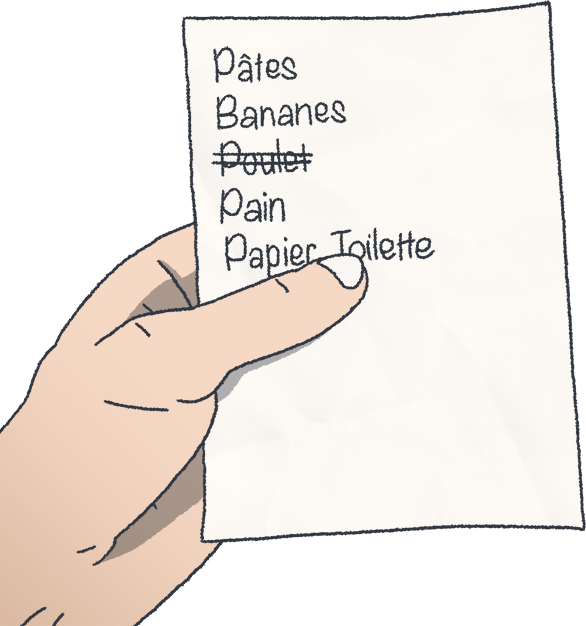 Pâtes
Bananes
Poulet
Pain
Papier Toilette